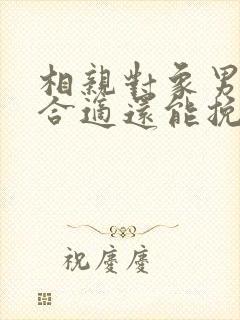 相親對象男
合適還能挽
祝慶慶